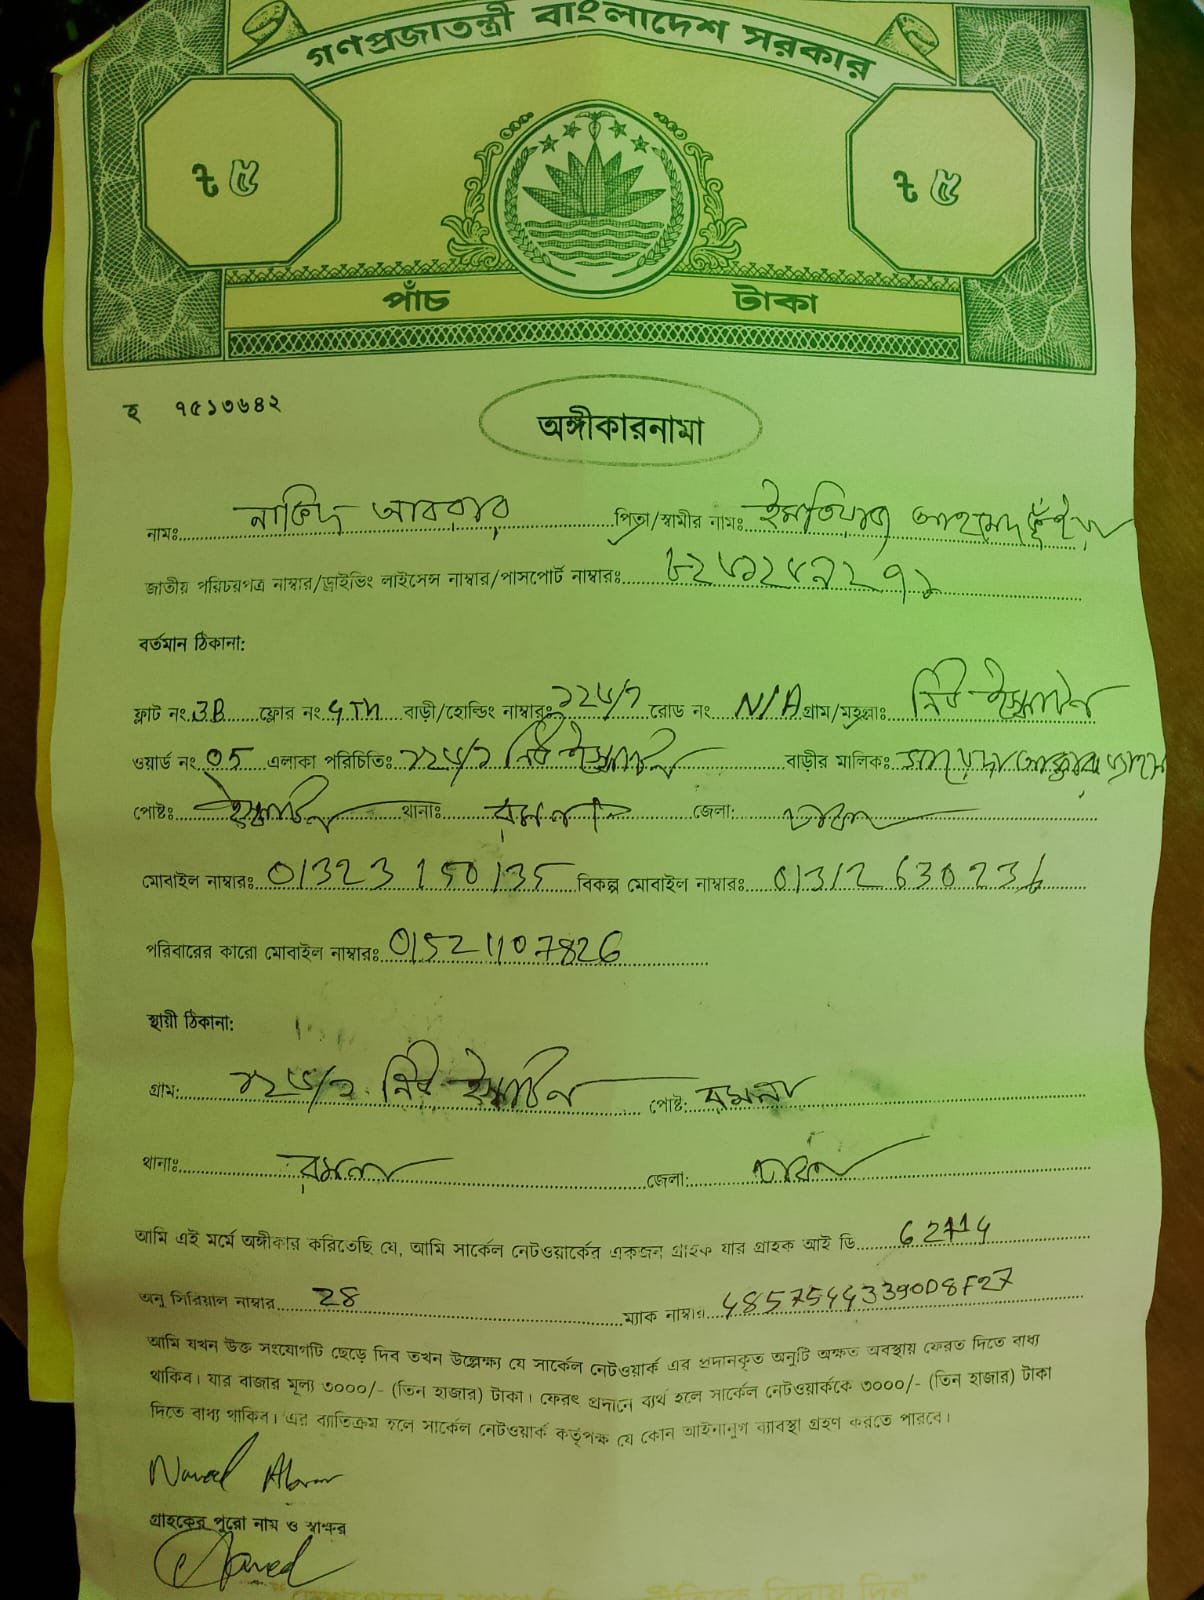 গণপ্রজাতন্ত্রী বাংলাদেশ সরকার
৳ ৫ ৳ ৫
পাঁচ টাকা
হ ৭৫১৩৬৪২
অঙ্গীকারনামা
নামঃ আবরার পিতা/স্বামীর নামঃ ইমতিয়াজ আহমেদ ভূঁইয়া
জাতীয় পরিচয়পত্র নাম্বার/ড্রাইভিং লাইসেন্স নাম্বার/পাসপোর্ট নাম্বারঃ
বর্তমান ঠিকানা:
ফ্লাট নং 3B ফ্লোর নং 4Th বাড়ী/হোল্ডিং নাম্বারঃ রোড নং N/A গ্রাম/মহল্লাঃ নিউ ইস্কাটন
ওয়ার্ড নং 05 এলাকা পরিচিতিঃ নিউ ইস্কাটন বাড়ীর মালিকঃ
পোষ্টঃ ইস্কাটন থানাঃ রমনা জেলা: ঢাকা
মোবাইল নাম্বারঃ 01323150135 বিকল্প মোবাইল নাম্বারঃ 01312630236
পরিবারের কারো মোবাইল নাম্বারঃ 01521107826
স্থায়ী ঠিকানা:
গ্রাম: নিউ ইস্কাটন পোষ্ট: রমনা
থানাঃ রমনা জেলা: ঢাকা
আমি এই মর্মে অঙ্গীকার করিতেছি যে, আমি সার্কেল নেটওয়ার্কের একজন গ্রাহক যার গ্রাহক আই ডি
অনু সিরিয়াল নাম্বার 28 ম্যাক নাম্বার 48575443390D8F27
আমি যখন উক্ত সংযোগটি ছেড়ে দিব তখন উল্লেক্ষ্য যে সার্কেল নেটওয়ার্ক এর প্রদানকৃত অনুটি অক্ষত অবস্থায় ফেরত দিতে বাধ্য
থাকিব। যার বাজার মূল্য ৩০০০/- (তিন হাজার) টাকা। ফেরৎ প্রদানে ব্যর্থ হলে সার্কেল নেটওয়ার্ককে ৩০০০/- (তিন হাজার) টাকা
দিতে বাধ্য থাকিব। এর ব্যাতিক্রম হলে সার্কেল নেটওয়ার্ক কর্তৃপক্ষ যে কোন আইনানুগ ব্যাবস্থা গ্রহণ করতে পারবে।
গ্রাহকের পুরো নাম ও স্বাক্ষর